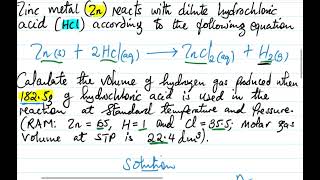 Zinc metal (Zn) reacts with dilute hydrochloric
acid (HCl) according to the following equation
Zn(s) + 2HCl(aq) → ZnCl2(aq) + H2(g)
Calculate the volume of hydrogen gas produced when
182.5g g hydrochloric acid is used in the
reaction at standard temperature and pressure.
(RAM: Zn = 65, H = 1 and Cl = 35.5; molar gas
volume at STP is 22.4 dm³).
Solution